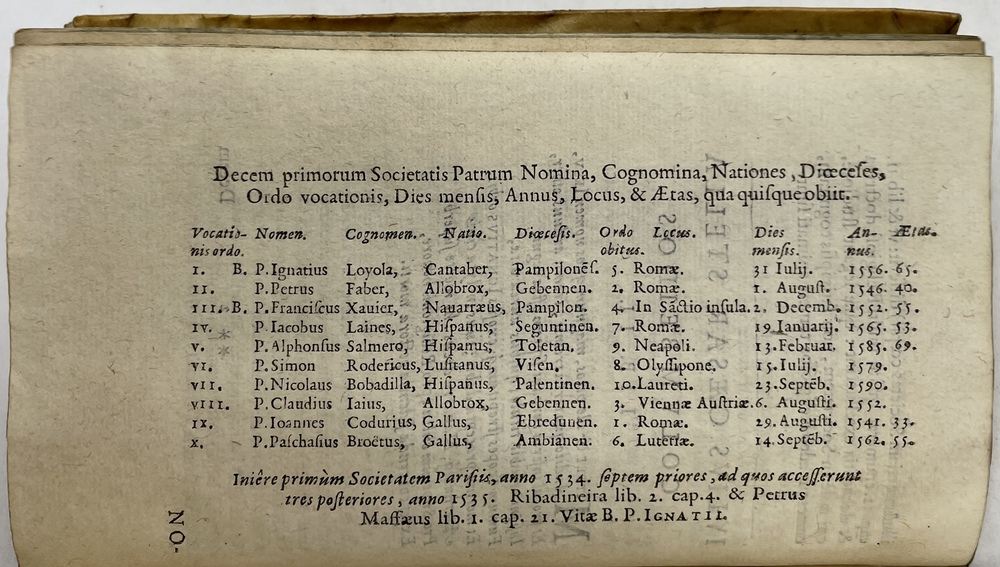 Decem primorum Societatis Patrum Nomina, Cognomina, Nationes, Diœceſes,
Ordo vocationis, Dies menſis, Annus, Locus, & Ætas, qua quiſque obiit.
Vocatio- Nomen. Cognomen. Natio. Diœceſis. Ordo Locus. Dies An- Ætas.
nis ordo. obitus. menſis. nus.
I. B. P. Ignatius Loyola, Cantaber, Pampilonēſ. 5. Romæ. 31 Iulij. 1556. 65.
II. P. Petrus Faber, Allobrox, Gebennen. 2. Romæ. 1. Auguſt. 1546. 40.
III. B. P. Franciſcus Xauier, Nauarræus, Pampilon. 4. In Sāctio inſula. 2. Decemb. 1552. 55.
IV. P. Iacobus Laines, Hiſpanus, Seguntinen. 7. Romæ. 19 Ianuarij. 1565. 53.
V. P. Alphonſus Salmero, Hiſpanus, Toletan. 9. Neapoli. 13. Februar. 1585. 69.
VI. P. Simon Rodericus, Luſitanus, Viſen. 8. Olyſſipone. 15. Iulij. 1579.
VII. P. Nicolaus Bobadilla, Hiſpanus, Palentinen. 10. Laureti. 23. Septēb. 1590.
VIII. P. Claudius Iaius, Allobrox, Gebennen. 3. Viennæ Auſtriæ. 6. Auguſti. 1552.
IX. P. Ioannes Codurius, Gallus, Ebredunen. 1. Romæ. 29. Auguſti. 1541. 33.
X. P. Paſchaſius Broëtus, Gallus, Ambianen. 6. Lutetiæ. 14. Septēb. 1562. 55.
Iniêre primùm Societatem Pariſiis, anno 1534. ſeptem priores, ad quos acceſſerunt
tres poſteriores, anno 1535. Ribadineira lib. 2. cap. 4. & Petrus
Maffæus lib. 1. cap. 21. Vitæ B. P. IGNATII.
NO-